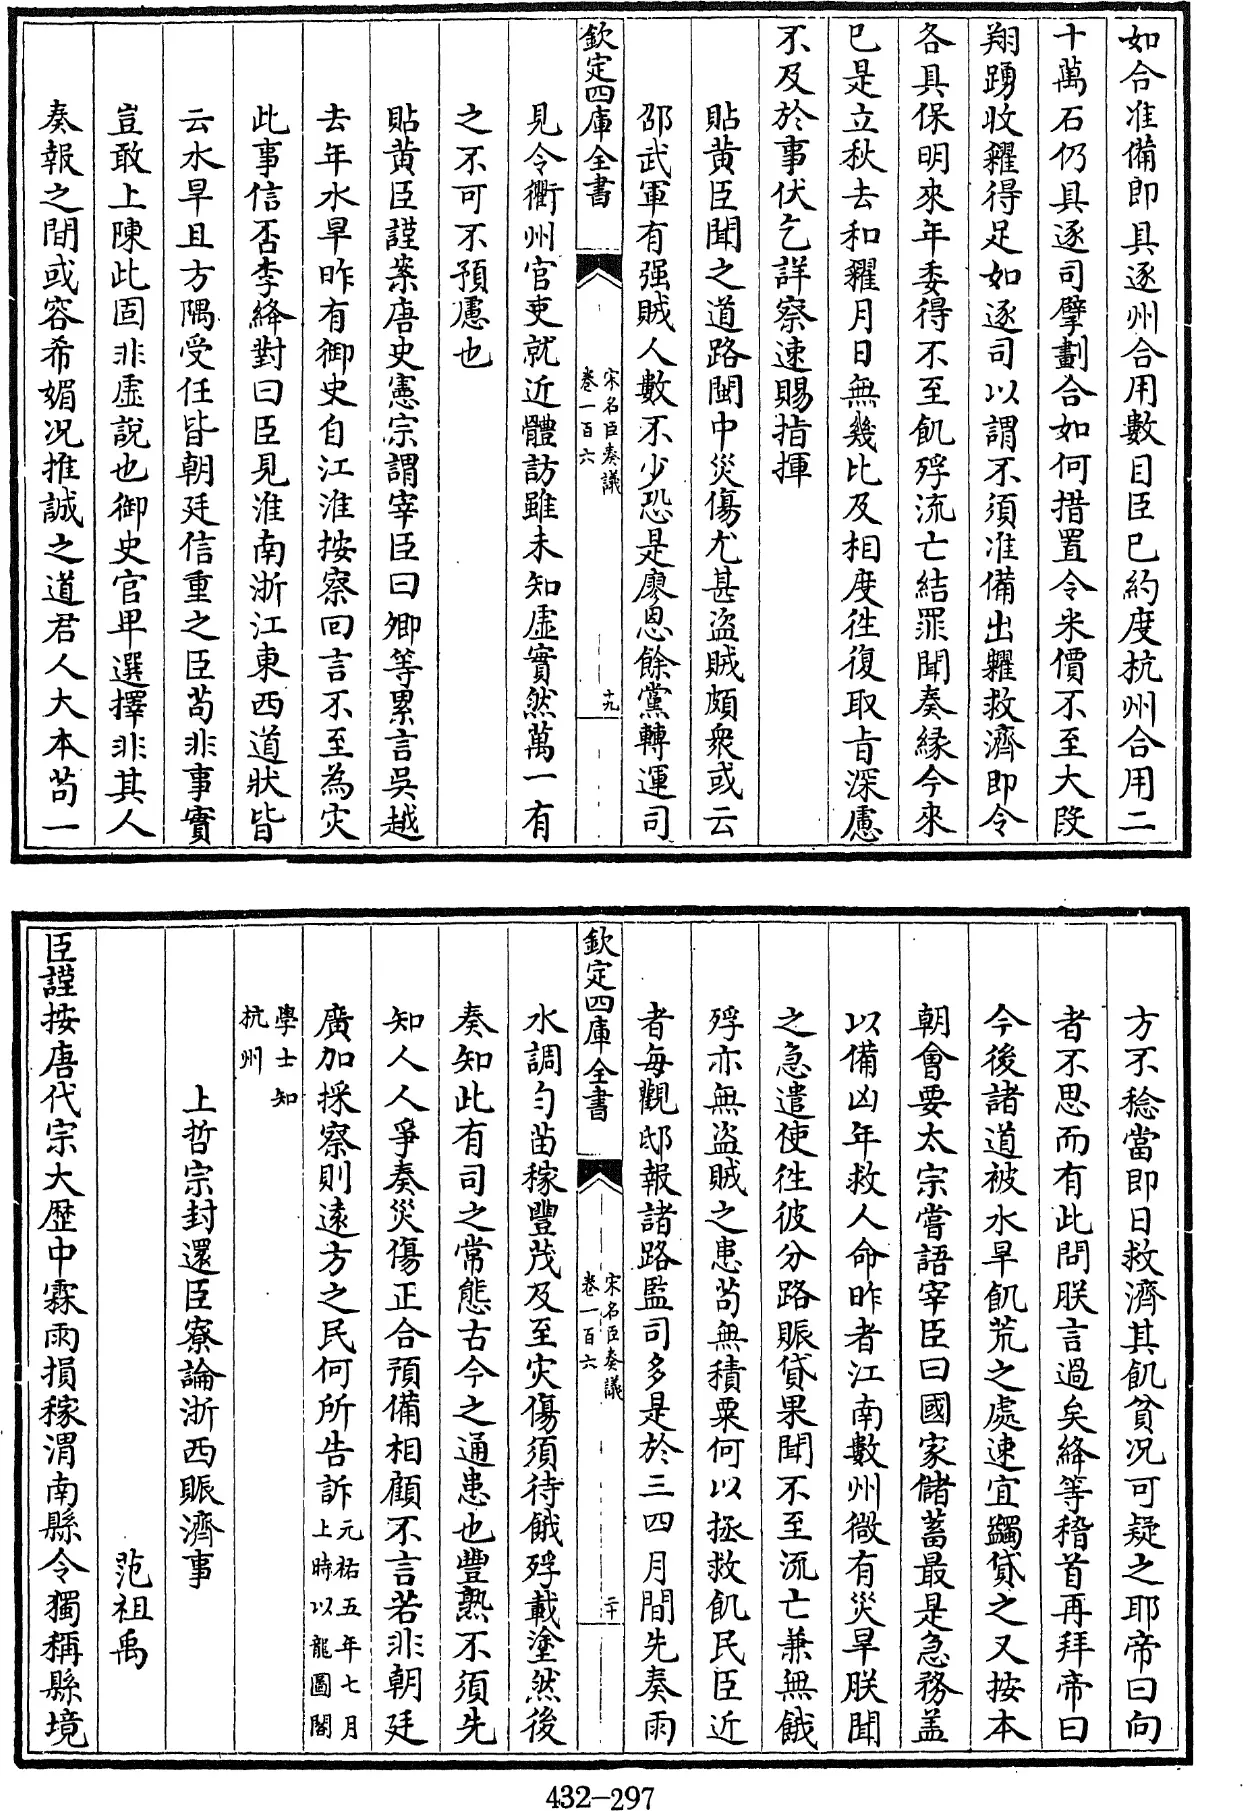 如合准備即具逐州合用數目臣已約度杭州合用二
十萬石仍具逐司擘劃合如何措置令米價不至大段
翔踴收糴得足如逐司以謂不須准備出糶救濟即令
各具保明來年委得不至飢殍流亡結罪聞奏緣今來
已是立秋去和糴月日無幾比及相度徃復取旨深慮
不及於事伏乞詳察速賜指揮
貼黄臣聞之道路閩中災傷尤甚盗賊頗衆或云
邵武軍有强賊人數不少恐是廖恩餘黨轉運司
欽定四庫全書
宋名臣奏議
卷一百六
十九
見令衢州官吏就近體訪雖未知虛實然萬一有
之不可不預慮也
貼黄臣謹案唐史憲宗謂宰臣曰卿等累言吳越
去年水旱昨有御史自江淮按察回言不至為灾
此事信否李絳對曰臣見淮南浙江東西道狀皆
云水旱且方隅受任皆朝廷信重之臣苟非事實
豈敢上陳此固非虛說也御史官卑選擇非其人
奏報之間或容希媚况推誠之道君人大本苟一
方不稔當即日救濟其飢貧况可疑之耶帝曰向
者不思而有此問朕言過矣絳等稽首再拜帝曰
今後諸道被水旱飢荒之處速宜蠲貸之又按本
朝會要太宗嘗語宰臣曰國家儲蓄最是急務盖
以備凶年救人命昨者江南數州微有災旱朕聞
之急遣使徃彼分路賑貸果聞不至流亡兼無餓
殍亦無盗賊之患苟無積粟何以拯救飢民臣近
者每觀邸報諸路監司多是於三四月間先奏雨
欽定四庫全書
宋名臣奏議
卷一百六
二十
水調勻苗稼豐茂及至灾傷須待餓殍載塗然後
奏知此有司之常態古今之通患也豐熟不須先
知人人爭奏災傷正合預備相顧不言若非朝廷
廣加採察則遠方之民何所告訴元祐五年七月
上時以龍圖閣
學士知
杭州
上哲宗封還臣寮論浙西賑濟事
范祖禹
臣謹按唐代宗大歷中霖雨損稼渭南縣令獨稱縣境
432-297